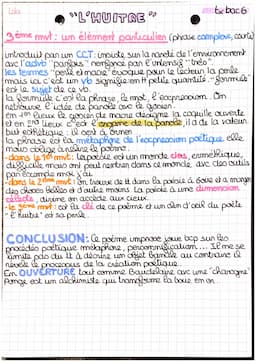 Lola
"L'HUITRE"
txt bac 6
3ème mvt : un élément particulier (phrase complexe, courte)
introduit par un CCT : insiste sur la rareté de l'évènement
avec l'advb "parfois" renforcé par l'intensif "très"
les termes "perle et nacre" évoque pour le lecteur la perle
mais ici c'est un vb signifie en petite quantité. "formule"
est le sujet de ce vb.
La formule c'est la phrase, le mot, l'expression. On
retrouve l'idée de parole avec le gosier.
En 1er lieu le gosier de nacre désigne la coquille ouverte
et en 2nd lieu c'est l'organe de la parole, il a de la valeur
but esthétique : il sert à orner
La phrase est la métaphore de l'expression poétique elle
nous oblige à relire le poème :
- dans le 1er mvt : Le poème est un monde clos, hermétique
difficile mais on peut rentrer dans ce monde avec des outils
par exemple moi j'ai
- dans le 2ème mvt : On trouve tt dans la poésie à boire et à manger
des choses belles et d'autre moins. La poésie à une dimension
céleste, divine on accède aux cieux.
- le 3ème mvt : est la clé de ce poème et un clin d'oeil du poète
"L'huitre" et sa perle
CONCLUSION : Ce poème emprunte bcp sur les
procédés poétique métaphore, personnification... Il ne se
limite pas du tt à décrire un objet banale au contraire il
révèle le processus de la création poétique.
En OUVERTURE tout comme Baudelaire avec une "charogne"
Ponge est un alchimiste qui transforme la boue en or.